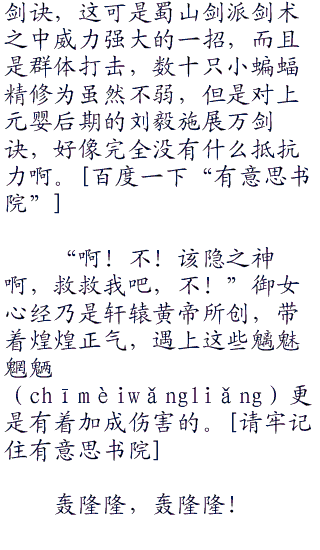 剑诀，这可是蜀山剑派剑术
之中威力强大的一招，而且
是群体打击，数十只小蝙蝠
精修为虽然不弱，但是对上
元婴后期的刘毅施展万剑
诀，好像完全没有什么抵抗
力啊。[百度一下“有意思书
院”]
“啊！不！该隐之神
啊，救救我吧，不！”御女
心经乃是轩辕黄帝所创，带
着煌煌正气，遇上这些魑魅
魍魉
（chīmèiwǎngliǎng）更
是有着加成伤害的。[请牢记
住有意思书院]
轰隆隆，轰隆隆！